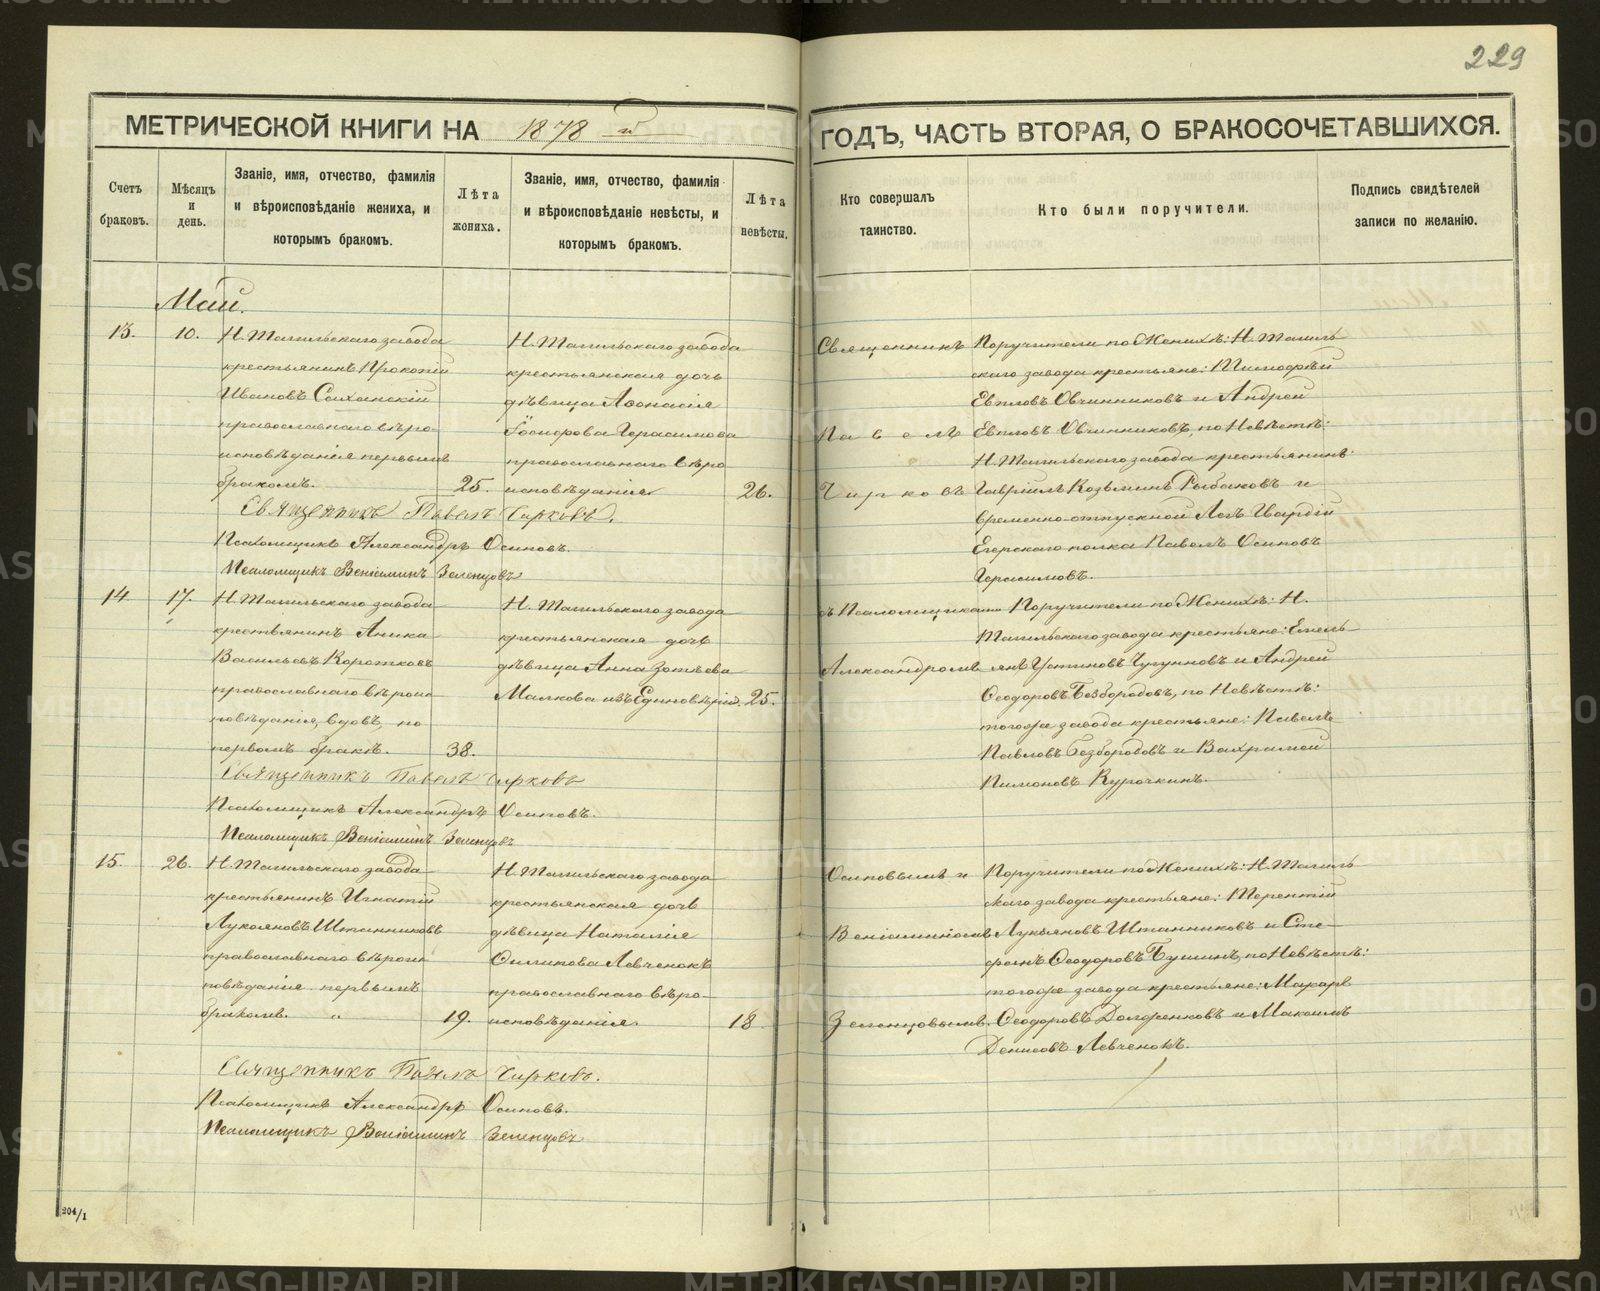 229
МЕТРИЧЕСКОЙ КНИГИ НА 1878 й ГОДЪ, ЧАСТЬ ВТОРАЯ, О БРАКОСОЧЕТАВШИХСЯ.
Счетъ
браковъ.
Мѣсяцъ
и
день.
Званіе, имя, отчество, фамилія
и вѣроисповѣданіе жениха, и
которымъ бракомъ.
Лѣта
жениха.
Званіе, имя, отчество, фамилія
и вѣроисповѣданіе невѣсты, и
которымъ бракомъ.
Лѣта
невѣсты.
Кто совершалъ
таинство.
Кто были поручители.
Подпись свидѣтелей
записи по желанію.
Май.
13.
10.
Н. Тагильскаго завода
крестьянинъ Прокопій
Ивановъ
православнаго вѣро-
исповѣданія первымъ
бракомъ.
25.
Н. Тагильскаго завода
крестьянская дочь
дѣвица Аѳонасія
Герасимова
православнаго вѣро
исповѣданія.
26.
Священникъ Павелъ Чирковъ.
Псаломщикъ Александръ Осиповъ.
Псаломщикъ Веніаминъ Зеленцовъ
14.
17.
Н. Тагильскаго завода
крестьянинъ Аника
Васильевъ Коротковъ
православнаго вѣроис
повѣданія, вдовъ, по
первомъ бракѣ.
38.
Н. Тагильскаго завода
крестьянская дочь
дѣвица Анна Зотѣева
Малкова изъ Единовѣрія.
25.
Священникъ Павелъ Чирковъ
Псаломщикъ Александръ Осиповъ.
Псаломщикъ Веніаминъ Зеленцовъ
15.
26.
Н. Тагильскаго завода
крестьянинъ Игнатій
Лукояновъ Штанниковъ
православнаго вѣроис
повѣданія первымъ
бракомъ. "
19.
Н. Тагильскаго завода
крестьянская дочь
дѣвица Наталія
Филипова Левченокъ
православнаго вѣро-
исповѣданія.
18.
Священникъ Павелъ Чирковъ.
Псаломщикъ Александръ Осиповъ.
Псаломщикъ Веніаминъ Зеленцовъ
Священникъ
Павелъ
Чирковъ
съ Псаломщиками
Александромъ
Осиповымъ и
Веніаминомъ
Зеленцовымъ.
Поручители по Женихѣ: Н. Тагиль
скаго завода крестьяне: Тимофѣй
Евпловъ Овчинниковъ и Андрей
Евпловъ Овчинниковъ, по Невѣстѣ:
Н. Тагильскаго завода крестьянинъ
Гавріилъ Козьминъ Рыбаковъ и
временно-отпускной Лейбъ Гвардіи
Егерскаго полка Павелъ Осиповъ
Герасимовъ.
Поручители по Женихѣ: Н.
Тагильскаго завода крестьяне: Емель
янъ Устиновъ Чугуновъ и Андрей
Ѳеодоровъ Безбородовъ, по Невѣстѣ:
тогоже завода крестьяне: Павелъ
Павловъ Безбородовъ и Вахрамей
Пимоновъ Курочкинъ.
Поручители по Женихѣ: Н. Тагиль
скаго завода крестьяне: Терентій
Лукьяновъ Штанниковъ и Сте-
фанъ Ѳеодоровъ Бушинъ, по Невѣстѣ:
тогоже завода крестьяне: Макаръ
Ѳеодоровъ Долоренковъ и Максимъ
Денисовъ Левченокъ.
204/1
METRIKI.GASO-URAL.RU